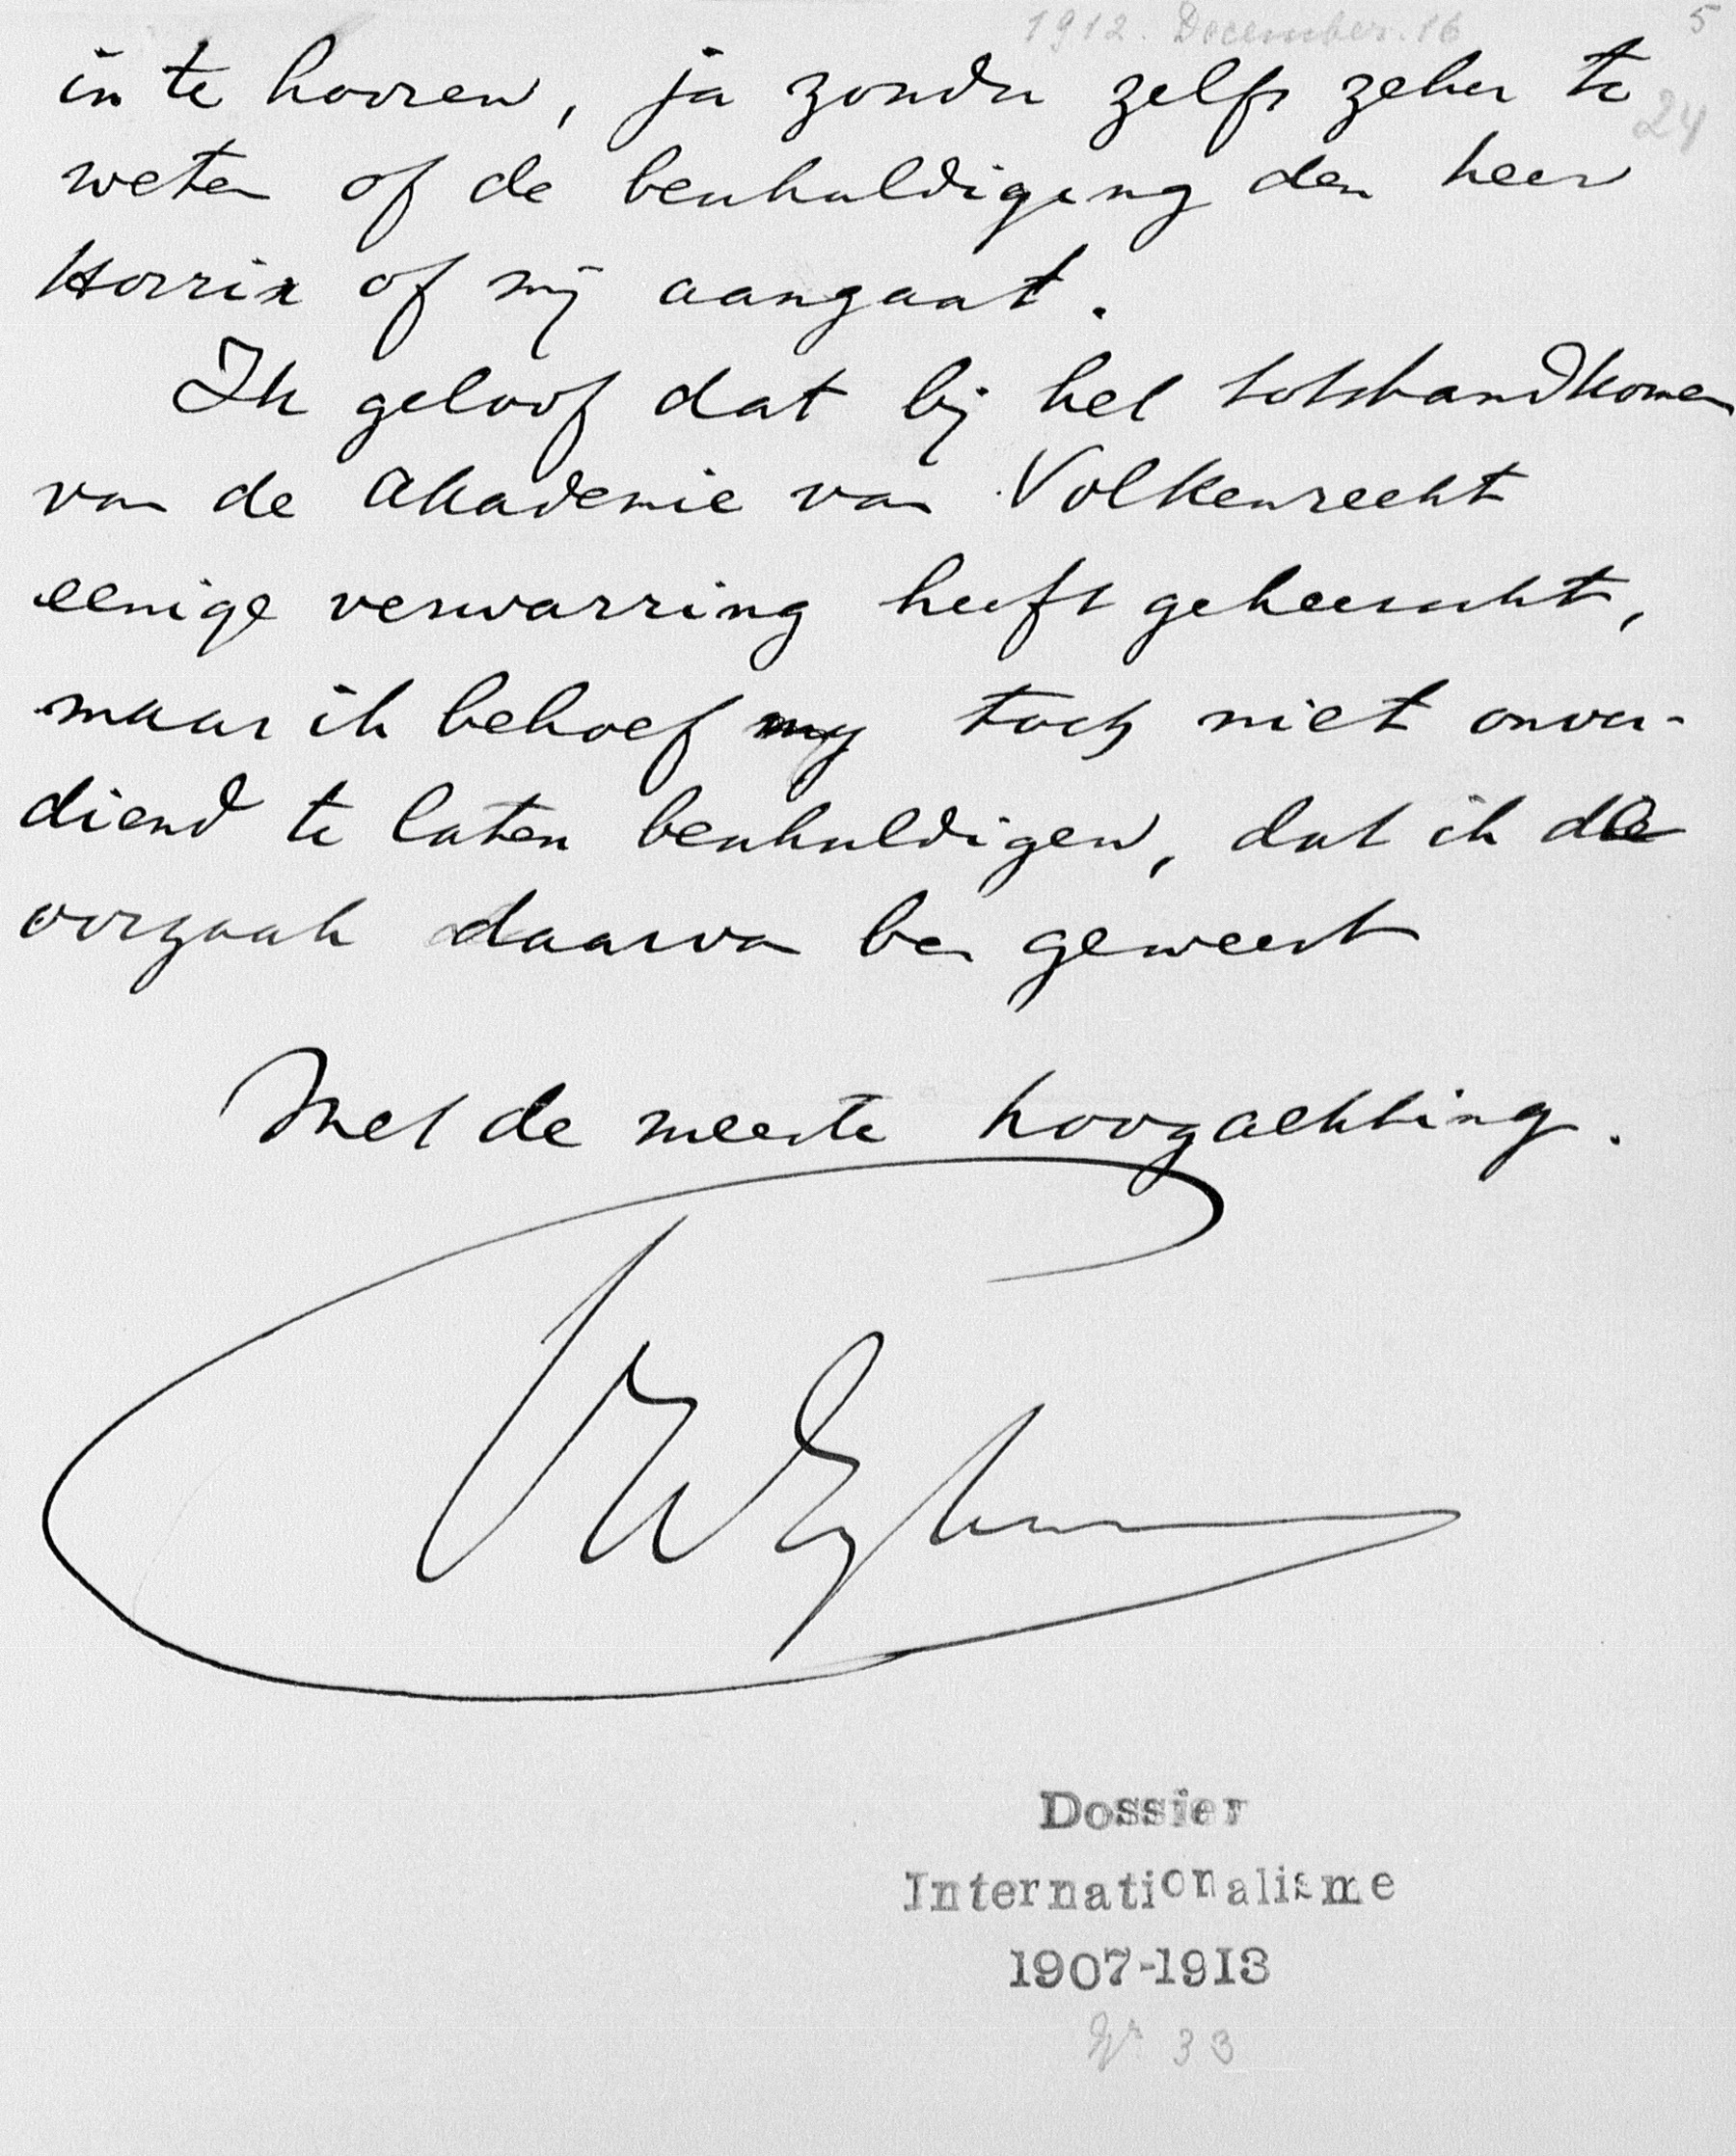 1912. December. 16 5
in te hooren, ja zonder zelfs zeker te
24
weten of de beuhuldiging den heer
Horrix of mij aangaat.
Ik geloof dat bij het totstandkomen
van de Akademie van Volkenrecht
eenige verwarring heeft geheerscht,
maar ik behoef mij toch niet onver-
diend te laten beuhuldigen, dat ik de
oorzaak daarvan ben geweest
Met de meeste hoogachting.
Dossier
Internationalisme
1907-1913
No. 33